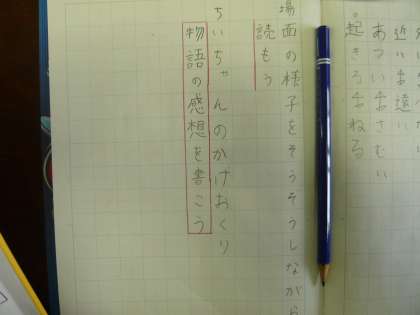 近い↔遠い
あつい↔さむい
起きる↔ねる
場面の様子をそうぞうしながら
読もう
ちいちゃんのかげおくり
物語の感想を書こう